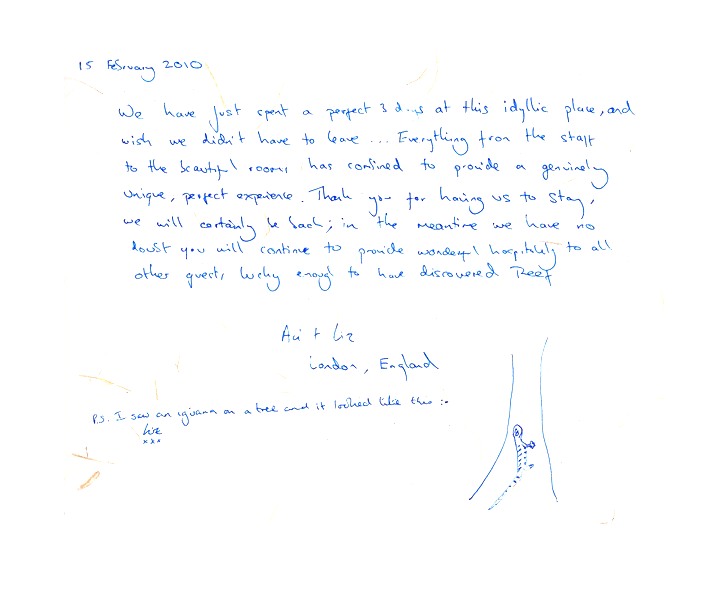 15 February 2010
We have just spent a perfect 3 days at this idyllic place, and
wish we didn't have to leave ... Everything from the staff
to the beautiful rooms has combined to provide a genuinely
unique, perfect experience. Thank you for having us to stay,
we will certainly be back; in the meantime we have no
doubt you will continue to provide wonderful hospitality to all
other guests lucky enough to have discovered Reef
+ Liz
London, England
P.S. I saw an iguana on a tree and it looked like this :-
Liz
xxx